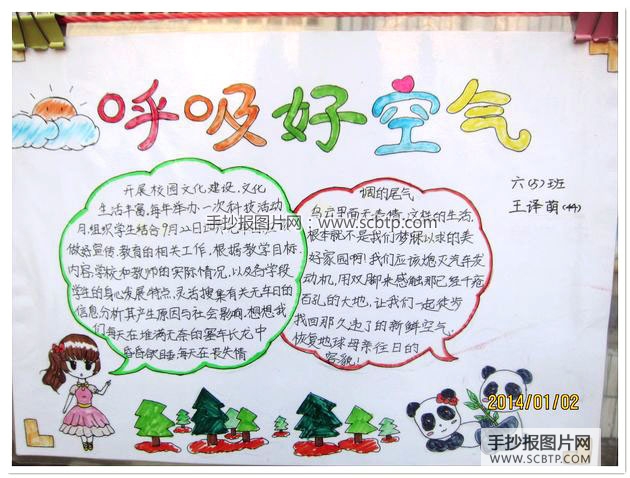 呼吸好空气
六(5)班
王译萌(44)
开展校园文化建设,文化
生活丰富,每年举办一次科技活动
月,组织学生结合9月22日
做好宣传、教育的相关工作,根据教学目标、
内容,学校和教师的实际情况,以及各学段
学生的身心发展特点,灵活搜集有关无车日的
信息分析其产生原因与社会影响.想想,我
们每天在堆满无奈的塞车长龙中
昏昏欲睡,每天在表情
调的尾气
乌云里面无表情,这样的生活,
根本就不是我们梦寐以求的美
好家园啊!我们应该熄灭汽车发
动机,用双脚来感触那已经千疮
百孔的大地,让我们一起徒步
找回那久违了的新鲜空气,
恢复地球母亲往日的
容貌!
手抄报图片网 www.scbtp.com
2014/01/02
手抄报图片网
WWW.SCBTP.COM